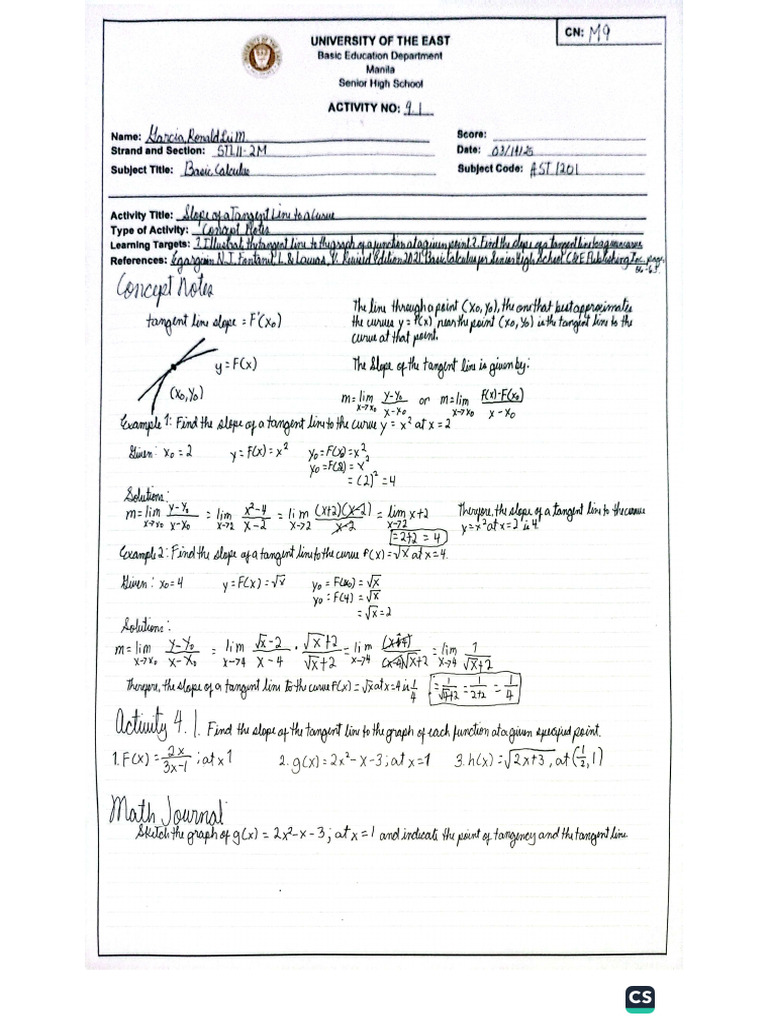 CN: M9
UNIVERSITY OF THE EAST
Basic Education Department
Manila
Senior High School
ACTIVITY NO: 9.1
Name: Garcia, Ronald Lei M. Score:
Strand and Section: STL11-2M Date:
Subject Title: Basic Calculus Subject Code: AST1201
Activity Title: Slope of a Tangent Line to a Curve
Type of Activity: Concept Notes
Learning Targets: 1. Illustrate the tangent line to the graph of a function at a given point 2. Find the slope of a tangent line to a given curve
References: Egarguin N.J., Fontanil L. & Lawas, V. Revised Edition 2021 Basic Calculus for Senior High School C&E Publishing Inc. page
Concept Notes
tangent line slope = F'(x₀)
y = F(x)
(x₀, y₀)
The line through a point (x₀, y₀), the one that best approximates
the curves y = F(x) near the point (x₀, y₀) is the tangent line to the
curve at that point.
The Slope of the tangent line is given by:
m = lim x→x₀ (y-y₀)/(x-x₀) or m = lim x→x₀ (F(x)-F(x₀))/(x-x₀)
Example 1: Find the slope of a tangent line to the curve y = x² at x = 2
Given: x₀ = 2 y = F(x) = x² y₀ = F(x₀) = x²
y₀ = F(2) = x²
= (2)² = 4
Solution:
m = lim x→x₀ (y-y₀)/(x-x₀) = lim x→2 (x²-4)/(x-2) = lim x→2 (x+2)(x-2)/(x-2) = lim x→2 x+2
= 2+2 = 4
Therefore, the slope of a tangent line to the curve
y = x² at x = 2 is 4.
Example 2: Find the slope of a tangent line to the curve f(x) = √x at x = 4.
Given: x₀ = 4 y = F(x) = √x y₀ = F(x₀) = √x
y₀ = F(4) = √x
= √x = 2
Solution:
m = lim x→x₀ (y-y₀)/(x-x₀) = lim x→4 (√x-2)/(x-4) · (√x+2)/(√x+2) = lim x→4 (x-4)/(x-4)√x+2 = lim x→4 1/(√x+2)
Therefore, the slope of a tangent line to the curve F(x) = √x at x = 4 is 1/4 = 1/(√4+2) = 1/(2+2) = 1/4
Activity 4.1. Find the slope of the tangent line to the graph of each function at a given specified point.
1. F(x) = 2x/(3x-1); at x 1 2. g(x) = 2x²-x-3; at x = 1 3. h(x) = √2x+3, at (1/2, 1)
Math Journal
Sketch the graph of g(x) = 2x²-x-3; at x = 1 and indicate the point of tangency and the tangent line.
CS